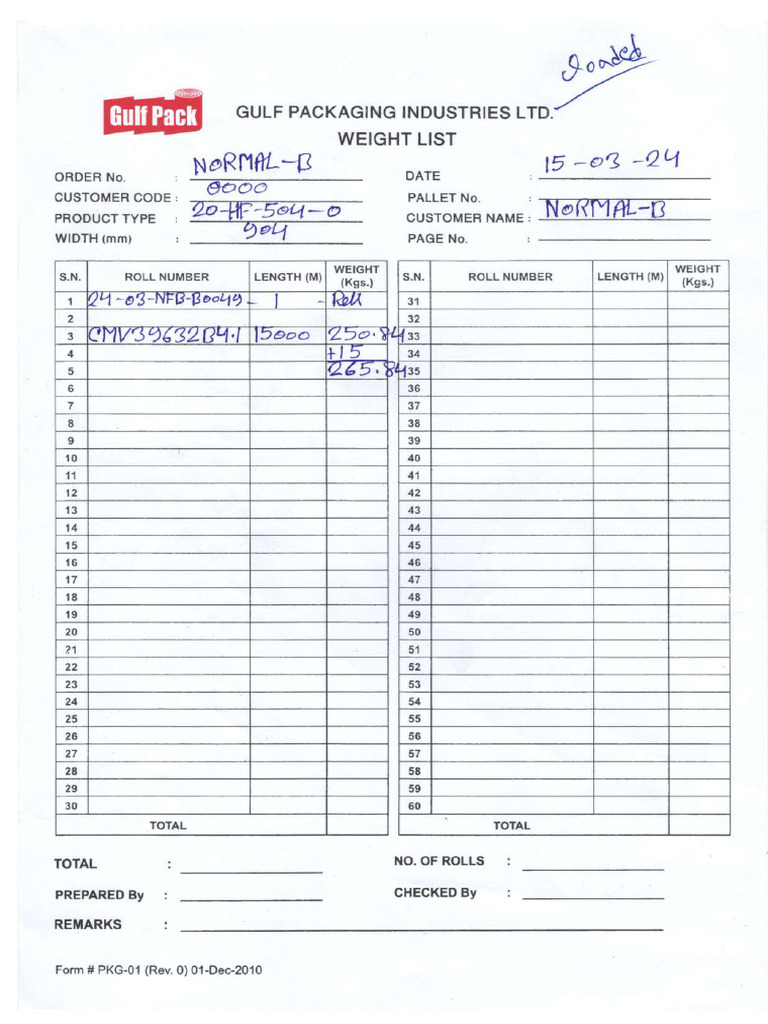 loaded
Gulf Pack
GULF PACKAGING INDUSTRIES LTD.
WEIGHT LIST
ORDER No. : NORMAL-B
DATE : 15-03-24
CUSTOMER CODE : 0000
PALLET No. :
PRODUCT TYPE : 20-HF-504-0
CUSTOMER NAME : NORMAL-B
WIDTH (mm) : 904
PAGE No. :
S.N. ROLL NUMBER LENGTH (M) WEIGHT (Kgs.) S.N. ROLL NUMBER LENGTH (M) WEIGHT (Kgs.)
1 24-03-NFB-B0049 - 1 - Roll 31
2 32
3 CMV39632B4.1 15000 250.84 33
4 +15 34
5 265.84 35
6 36
7 37
8 38
9 39
10 40
11 41
12 42
13 43
14 44
15 45
16 46
17 47
18 48
19 49
20 50
21 51
22 52
23 53
24 54
25 55
26 56
27 57
28 58
29 59
30 60
TOTAL TOTAL
TOTAL : NO. OF ROLLS :
PREPARED By : CHECKED By :
REMARKS :
Form # PKG-01 (Rev. 0) 01-Dec-2010